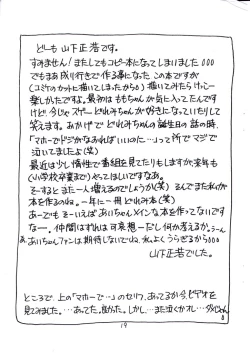 どーも 山下正浩です。
すみません!またしてもコピー本になってしまいました000
でもまあ成り行きで作る事になった この本ですが
(コミケのカットに描いてしまったから)描いてみたらけっこー
楽しかったですよ。最初はももちゃんが気に入ってたんです
けど、今じゃスゲーどれみちゃんが好きになっていたりして
笑えます。おかげでどれみちゃんの誕生日の話の時、
「マホーでドジがなおればいいのた…」って所でマジで
泣いてましたよ(笑)
最近は少し惰性で番組を見てたりもしますが、来年も
(小学校卒業まで)やってほしいですなあ。
そーすると また一人増えるのでしょうか(笑) るんでまた私が
本を作るのね。一年に一冊 どれみ本(笑)
あーでも そーいえば あいちゃんメインな本を作ってないです
なー。仲間はずれは可哀想…だし 何か考えるか。うーん
あ、あいちゃんファンは期待しないでね。水よく うらぎるから000
山下正浩でした。
ところで、上の「マホーで…」のセリフ、あってるか今ビデオを
見てみました。…あってた。良かった。しかし…また泣くかオレ…ダメじゃん
19